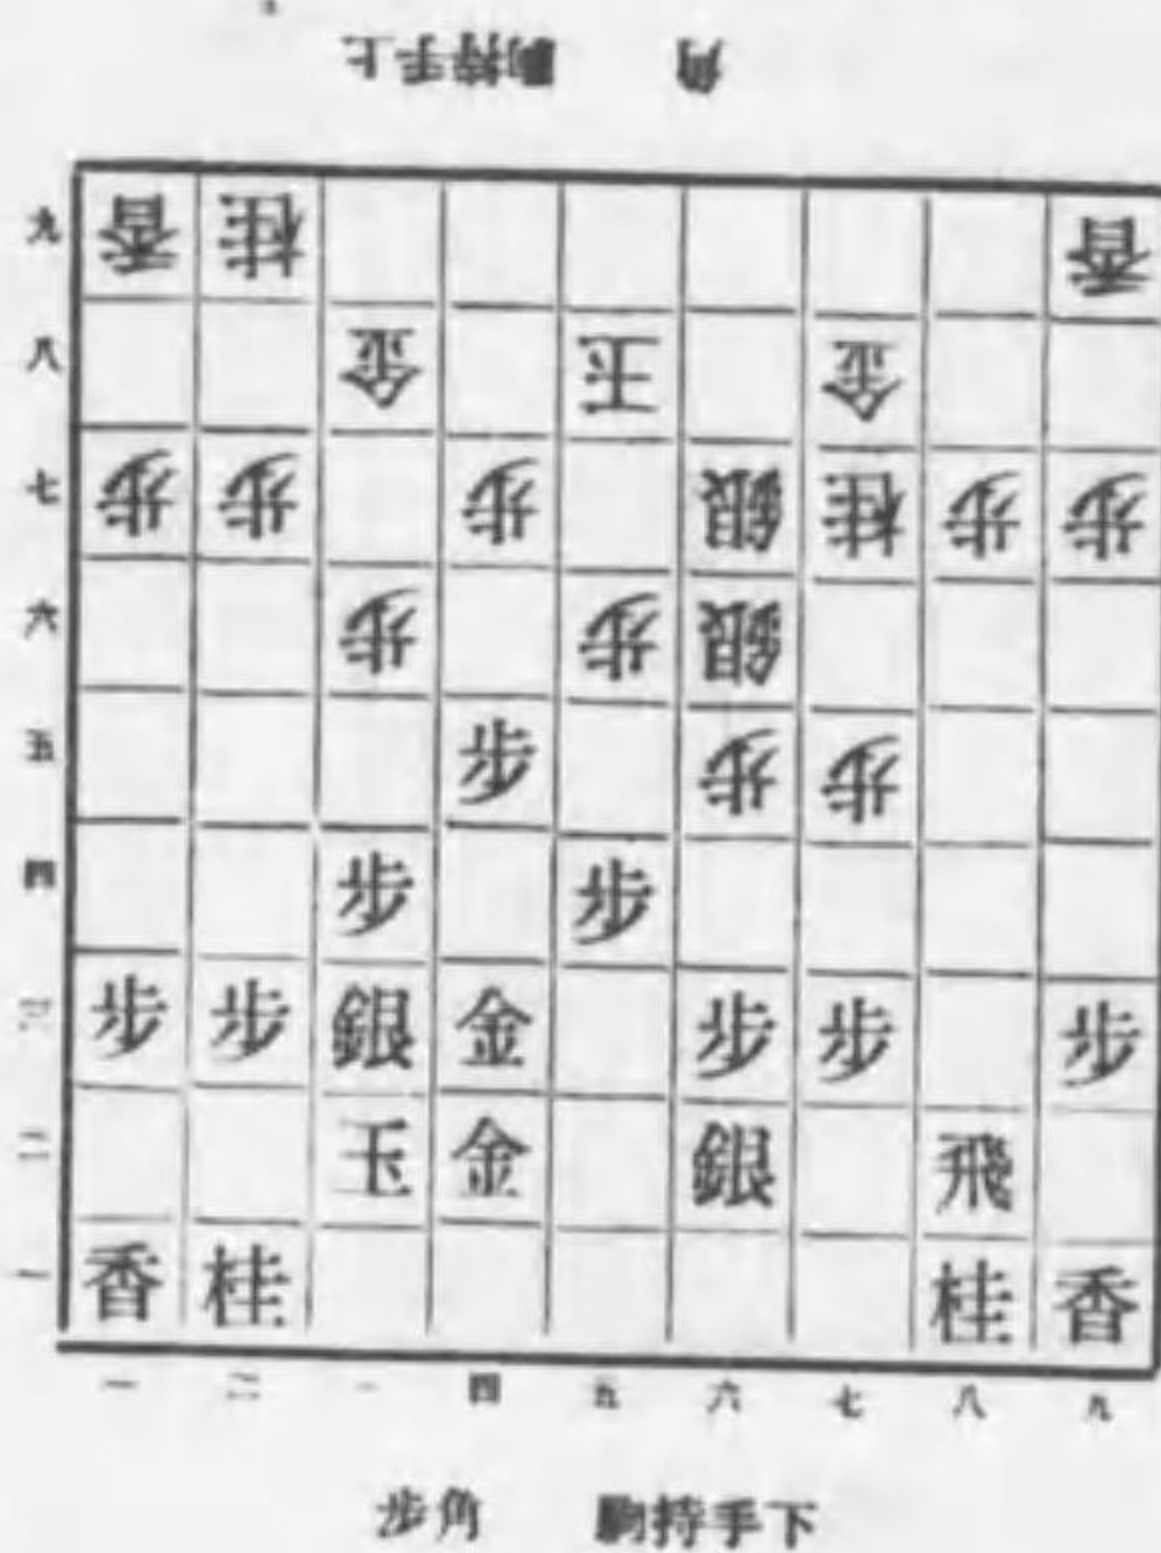 角 駒持手上
九 香 桂 香
八 金 玉 金
七 歩 歩 歩 銀 桂 歩 歩
六 歩 歩 銀
五 歩 歩 歩
四 歩 歩
歩 歩 銀 金 歩 歩 歩
二 玉 金 銀 飛
一 香 桂 桂 香
一 二 四 五 六 七 八 九
歩角 駒持手下